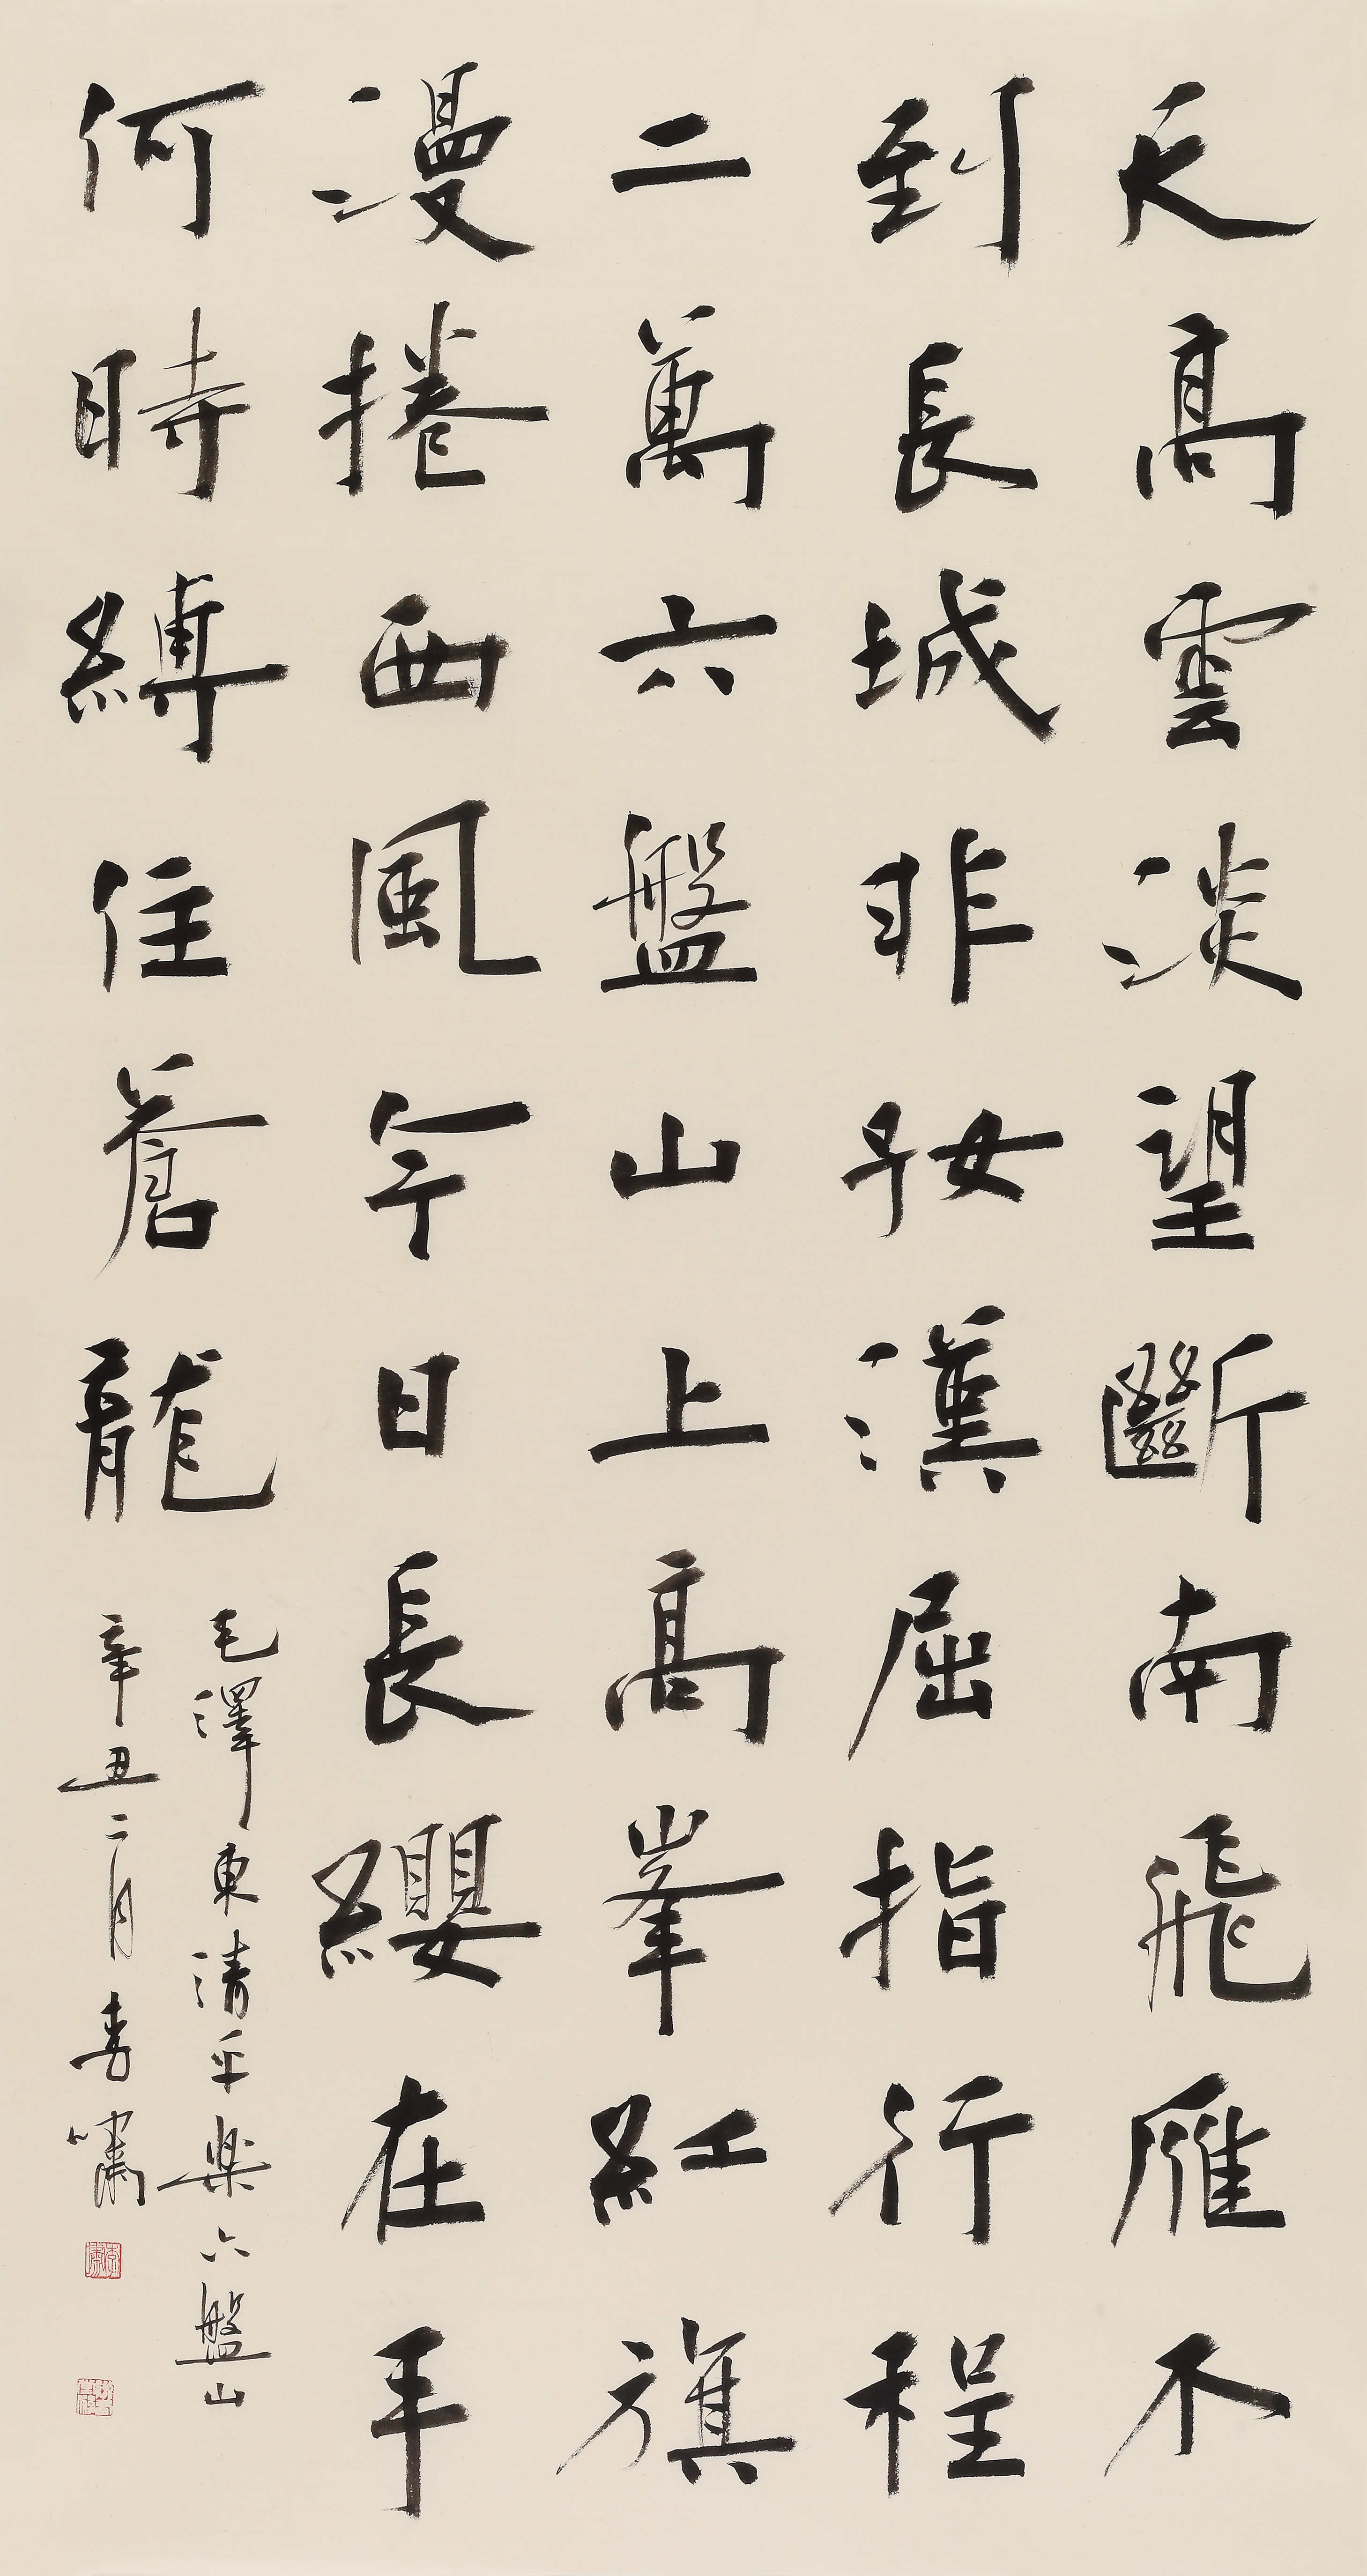 天高雲淡望斷南飛雁不
到長城非好漢屈指行程
二萬六盤山上高峯紅旗
漫捲西風今日長纓在手
何時縛住蒼龍
毛澤東清平楽六盤山
辛丑二月嘯